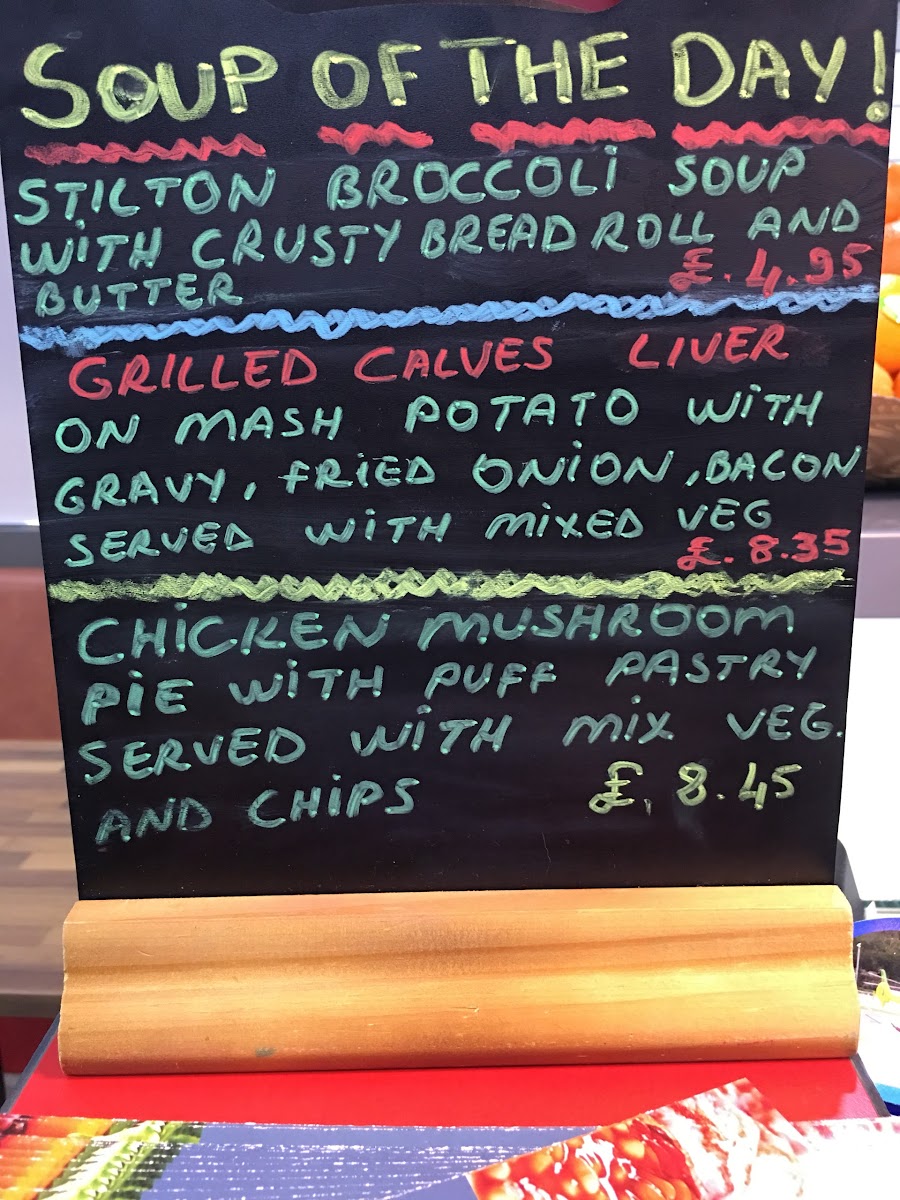 SOUP OF THE DAY!
STILTON BROCCOLI SOUP
WITH CRUSTY BREAD ROLL AND
BUTTER £. 4.95
GRILLED CALVES LIVER
ON MASH POTATO WITH
GRAVY, FRIED ONION, BACON
SERVED WITH MIXED VEG
£. 8.35
CHICKEN MUSHROOM
PIE WITH PUFF PASTRY
SERVED WITH MIX VEG.
AND CHIPS £. 8.45